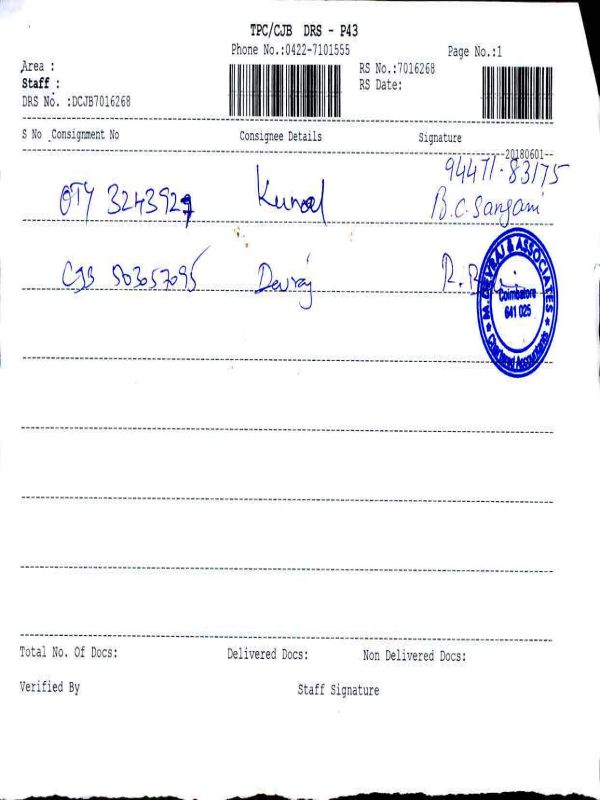 TPC/CJB DRS - P43
Phone No.:0422-7101555
Page No.:1
Area :
RS No.:7016268
Staff :
RS Date:
DRS No. :DCJB7016268
S No Consignment No Consignee Details Signature
20180601
94471-83175
OTY 3243927 Kunal B.C.Sangani
CJB 503057095 Devraj R.
M.DEVRAJ & ASSOCIATES
Coimbatore
641 025
Chartered Accountants
Total No. Of Docs: Delivered Docs: Non Delivered Docs:
Verified By Staff Signature